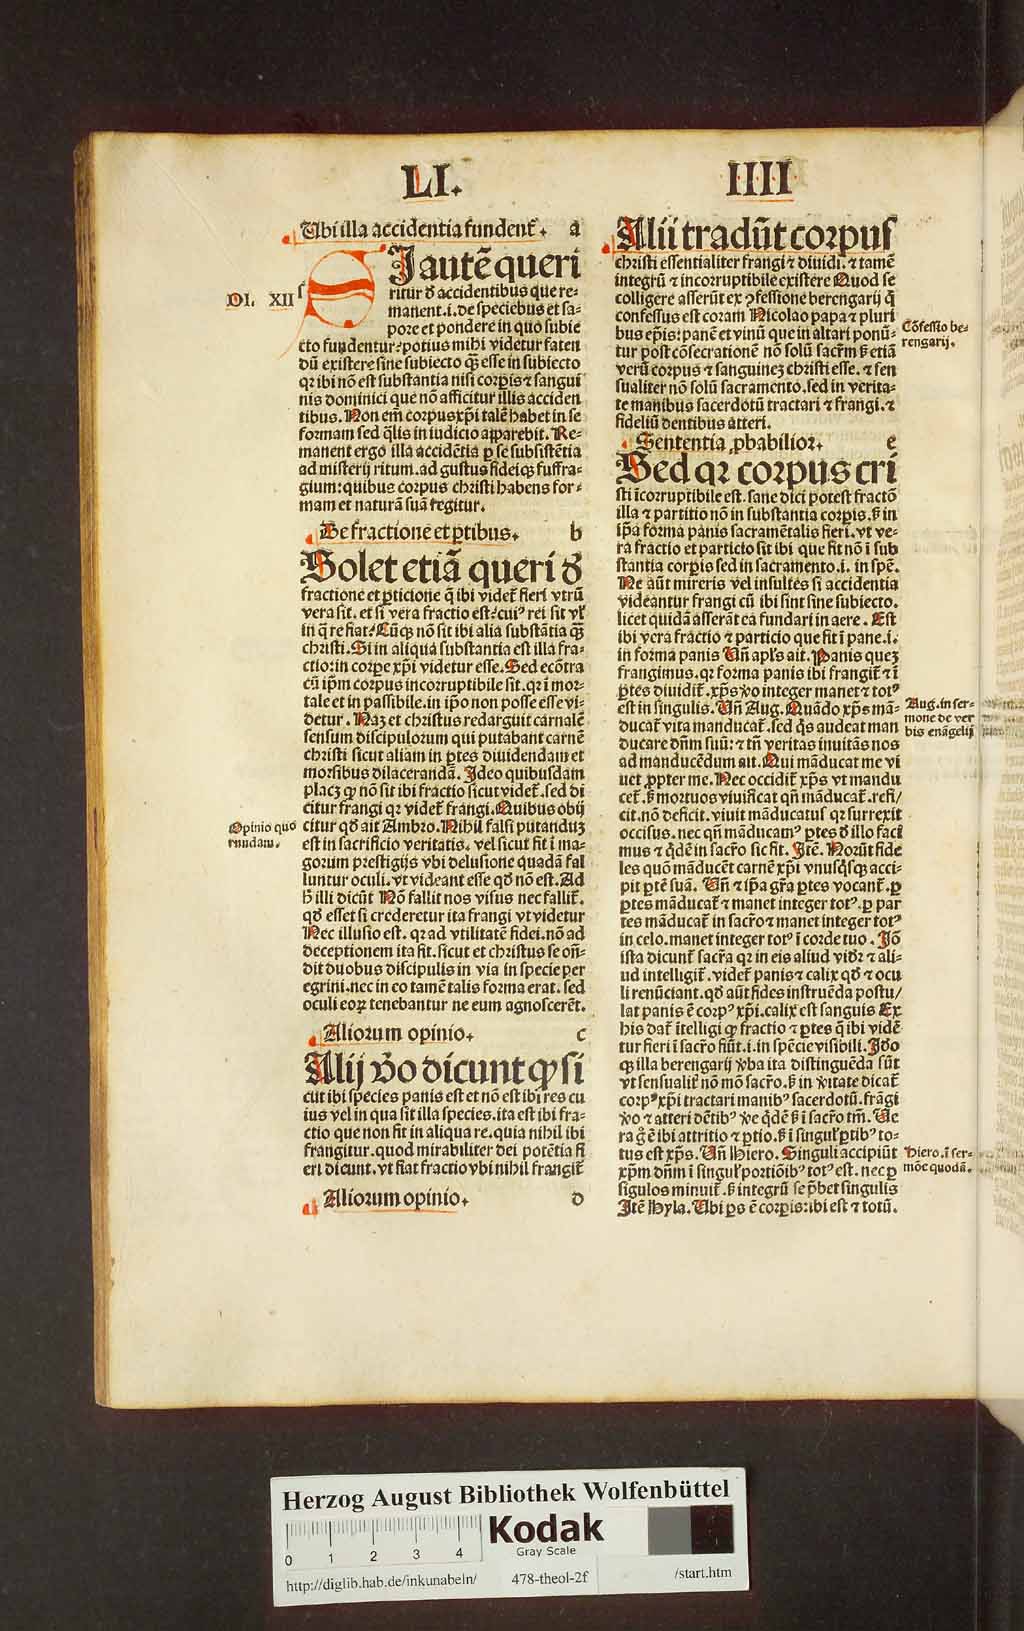 LI.
IIII
Ubi illa accidentia fundent᷑. a
DI. XII
SI autẽ queri
ritur ď accidentibus que re⸗
manent.i.de speciebus et sa⸗
pore et pondere in quo subie
cto fundentur: potius mihi videtur faten
dũ existere sine subiecto qȝ̃ esse in subiecto
qꝛ ibi nõ est substantia nisi corꝑis ⁊ sangui
nis dominici que nõ afficitur illis acciden
tibus. Non em̃ corpus xp̃i talẽ habet in se
formam sed q̃lis in iudicio apparebit. Re⸗
manent ergo illa accidẽtia ꝑ se subsistẽtia
ad misterij ritum. ad gustus fideiqȝ suffra⸗
gium: quibus corpus christi habens for⸗
mam et naturã suã tegitur.
De fractione et ꝑtibus. b
Solet etiã queri ď
fractione et ꝑticione q̃ ibi videt᷑ fieri vtrũ
vera sit. et si vera fractio est: cuiꝰ rei sit vl̕
in q̃ re fiat: Cũqȝ nõ sit ibi alia substãtia qȝ̃
christi. Si in aliqua substantia est illa fra⸗
ctio: in corꝑe xp̃i videtur esse. Sed ecõtra
cũ ip̃m corpus incorruptibile sit. qꝛ ĩ mor⸗
tale et in passibile. in ip̃o non posse esse vi⸗
detur. Naȝ et christus redarguit carnalẽ
sensum discipulorum qui putabant carnẽ
christi sicut aliam in ꝑtes diuidendam et
morsibus dilacerandã. Ideo quibusdam
placȝ ꝙ nõ sit ibi fractio sicut videt᷑. sed di
citur frangi qꝛ videt᷑ frangi. Quibus obij
citur qď ait Ambro. Nihil falsi putanduȝ
est in sacrificio veritatis. vel sicut fit ĩ ma⸗
gorum prestigijs vbi delusione quadã fal
luntur oculi. vt videant esse qď nõ est. Ad
h̃ illi dicũt Nõ fallit nos visus nec fallit᷑.
qď esset si crederetur ita frangi vt videtur
Nec illusio est. qꝛ ad vtilitatẽ fidei. nõ ad
deceptionem ita fit. sicut et christus se oñ⸗
dit duobus discipulis in via in specie per
egrini. nec in eo tamẽ talis forma erat. sed
oculi eoꝝ tenebantur ne eum agnoscerẽt.
Opinio quo
rundam.
Aliorum opinio. c
Alij ṽo dicunt ꝙ si
cut ibi species panis est et nõ est ibi res cu
ius vel in qua sit illa species. ita est ibi fra⸗
ctio que non fit in aliqua re. quia nihil ibi
frangitur. quod mirabiliter dei potẽtia fi
eri dicunt. vt fiat fractio vbi nihil frangit᷑
Aliorum opinio. d
Alii tradũt corpus
christi essentialiter frangi ⁊ diuidi. ⁊ tamẽ
integrũ ⁊ incorruptibile existere Quod se
colligere asserũt ex ꝯfessione berengarij q̃
confessus est coram Nicolao papa ⁊ pluri
bus ep̃is: panẽ et vinũ que in altari ponũ⸗
tur post cõsecrationẽ nõ solũ sacr̃m ß etiã
verũ corpus ⁊ sanguineȝ christi esse. ⁊ sen
sualiter nõ solũ sacramento. sed in verita⸗
te manibus sacerdotũ tractari ⁊ frangi. ⁊
fideliũ dentibus atteri.
Cõfessio be⸗
rengarij.
Sententia ꝓbabilior. e
Sed qꝛ corpus cri
sti ĩcorruptibile est. sane dici potest fractõ
illa ⁊ partitio nõ in substantia corꝑis. ß in
ip̃a forma panis sacramẽtalis fieri. vt ve⸗
ra fractio et particio sit ibi que fit nõ ĩ sub
stantia corꝑis sed in sacramento.i. in spẽ.
Ne aũt mireris vel insultes si accidentia
videantur frangi cũ ibi sint sine subiecto.
licet quidã asserãt ea fundari in aere. Est
ibi vera fractio ⁊ particio que fit ĩ pane.i.
in forma panis Uñ apl̕s ait. Panis queȝ
frangimus. qꝛ forma panis ibi frangit᷑ ⁊ ĩ
ꝑtes diuidit᷑. xp̃s ṽo integer manet ⁊ totꝰ
est in singulis. Uñ Aug. Quãdo xp̃s mã⸗
ducat᷑ vita manducat᷑. sed q̃s audeat man
ducare dñm suũ: ⁊ tñ veritas inuitãs nos
ad manducẽdum ait. Qui mãducat me vi
uet ꝓpter me. Nec occidit᷑ xp̃s vt mandu
cet᷑. ß mortuos viuificat qñ mãducat᷑. refi/
cit. nõ deficit. viuit mãducatus qꝛ surrexit
occisus. nec qñ mãducamꝰ ꝑtes ď illo faci
mus ⁊ q̃dẽ in sacr̃o sic fit. Itẽ. Norũt fide
les quõ mãducẽt carnẽ xp̃i vnusq̃sqȝ acci⸗
pit ꝑtẽ suã. Uñ ⁊ ip̃a gr̃a ꝑtes vocant᷑. ꝑ
ꝑtes mãducat᷑ ⁊ manet integer totꝰ. ꝑ par
tes mãducat᷑ in sacr̃o ⁊ manet integer totꝰ
in celo. manet integer totꝰ ĩ corde tuo. Iõ
ista dicunt᷑ sacr̃a qꝛ in eis aliud vidr̃ ⁊ ali⸗
ud intelligit᷑. videt᷑ panis ⁊ calix qď ⁊ ocu
li renũciant. qď aũt fides instruẽda postu/
lat panis ẽ corpꝰ xp̃i. calix est sanguis Ex
his dat᷑ ĩtelligi ꝙ fractio ⁊ ꝑtes q̃ ibi vidẽ
tur fieri ĩ sacr̃o fiũt.i. in spẽcie visibili. Iďo
qȝ illa berengarij ṽba ita distinguẽda sũt
vt sensualit᷑ nõ mõ sacr̃o. ß in ṽitate dicat᷑
corpꝰ xp̃i tractari manibꝰ sacerdotũ. frãgi
ṽo ⁊ atteri dẽtibꝰ ṽe q̃dẽ ß ĩ sacr̃o tm̃. Ve
ra g̃ ẽ ibi attritio ⁊ ꝑtio. ß ĩ singul̕ ꝑtibꝰ to⸗
tus est xp̃s. Uñ Hiero. Singuli accipiũt
xp̃m dñm ĩ singul̕ portiõibꝰ totꝰ est. nec ꝑ
sigulos minuit᷑. ß integrũ se p̃bet singulis
Itẽ Hyla. Ubi ꝑs ẽ corꝑis: ibi est ⁊ totũ.
Aug. in ser⸗
mone de ver
bis euãgelij
Hiero. ĩ ser⸗
mõe quodã.
Herzog August Bibliothek Wolfenbüttel
Kodak
Gray Scale
0 1 2 3 4
http://diglib.hab.de/inkunabeln/ 478-theol-2f /start.htm